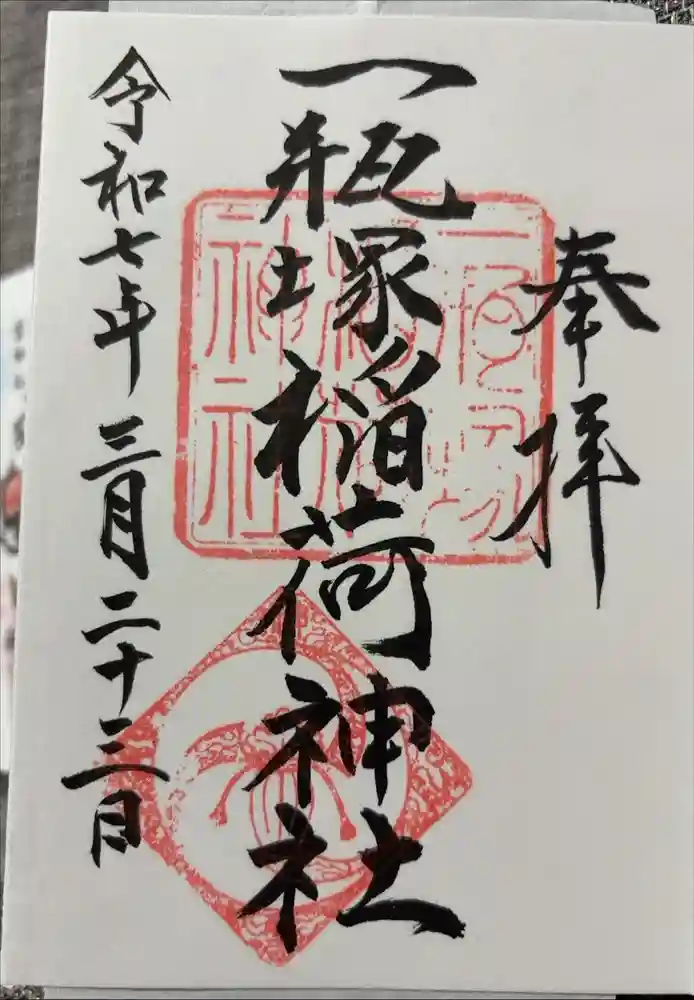 奉拝
一瓶塚稲荷神社
令和七年三月二十三日
一瓶塚
稲荷
神社